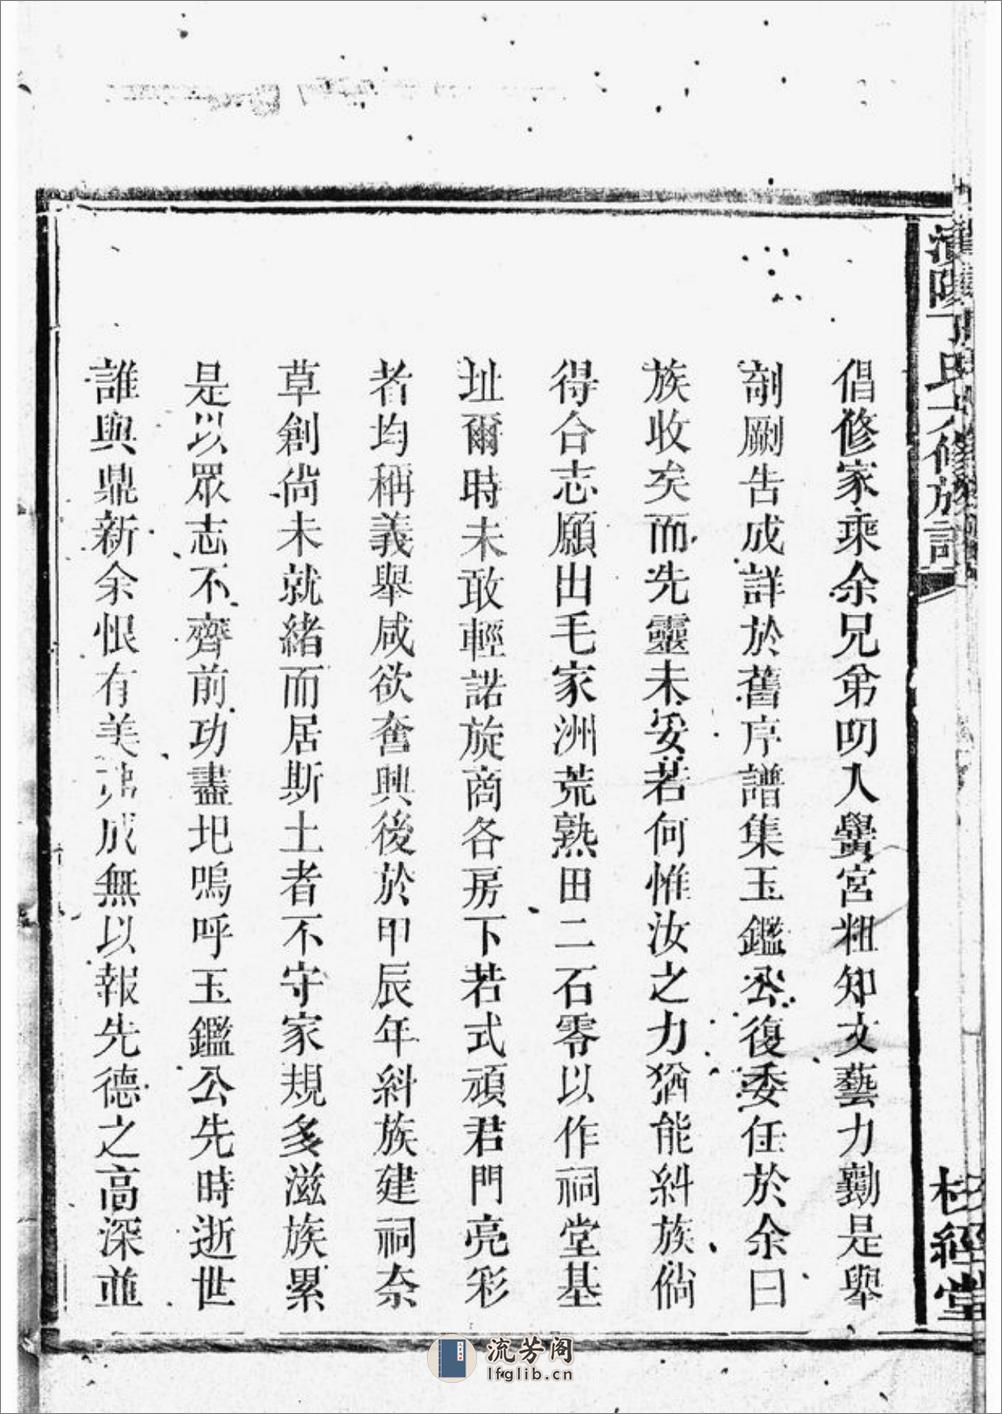 濱陽丁氏六修族譜
倡修家乘余兄弟叨入黌宮粗知文藝力勷是舉
剞劂告成詳於舊序譜集玉鑑公復委任於余曰
族收矣而先靈未妥若何惟汝之力猶能糾族倘
得合志願出毛家洲荒熟田二石零以作祠堂基
址爾時未敢輕諾旋商各房下若式頑君門亮彩
者均稱義舉咸欲奮興後於甲辰年糾族建祠奈
草創尚未就緒而居斯土者不守家規多滋族累
是以眾志不齊前功盡圯嗚呼玉鑑公先時逝世
誰與鼎新余恨有美弗成無以報先德之高深並
經堂
流芳阁
lfglib.cn